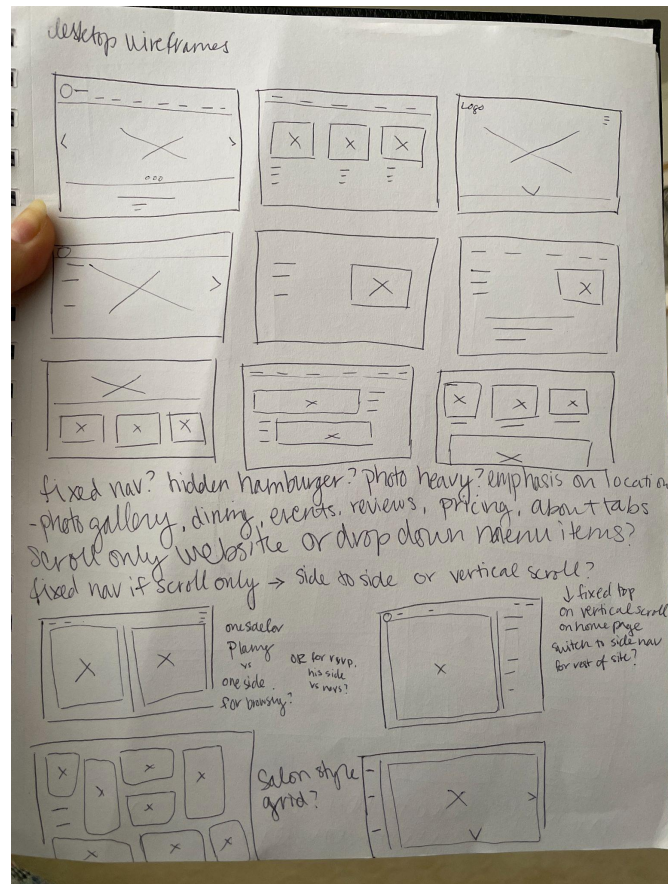 desktop wireframes
Logo
fixed nav? hidden hamburger? photo heavy? emphasis on location
-photo gallery, dining, events, reviews, pricing, about tabs
scroll only website or drop down menu items?
fixed nav if scroll only → side to side or vertical scroll?
one side for
vs
one side
for browsing?
OR for rsvp.
his side
vs hers?
↓ fixed top
on vertical scroll
on home page
switch to side nav
for rest of site?
Salon style
grid?